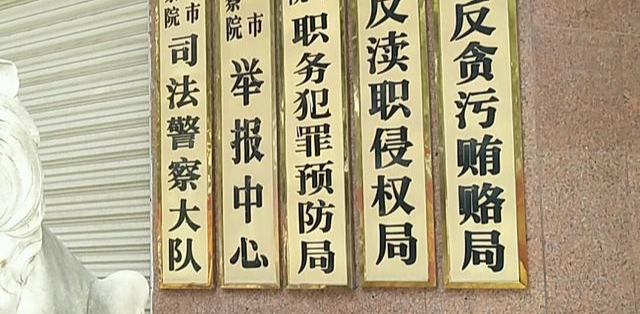 院 市
司法警察大队
院 市
举报中心
职务犯罪预防局
反渎职侵权局
反贪污贿赂局